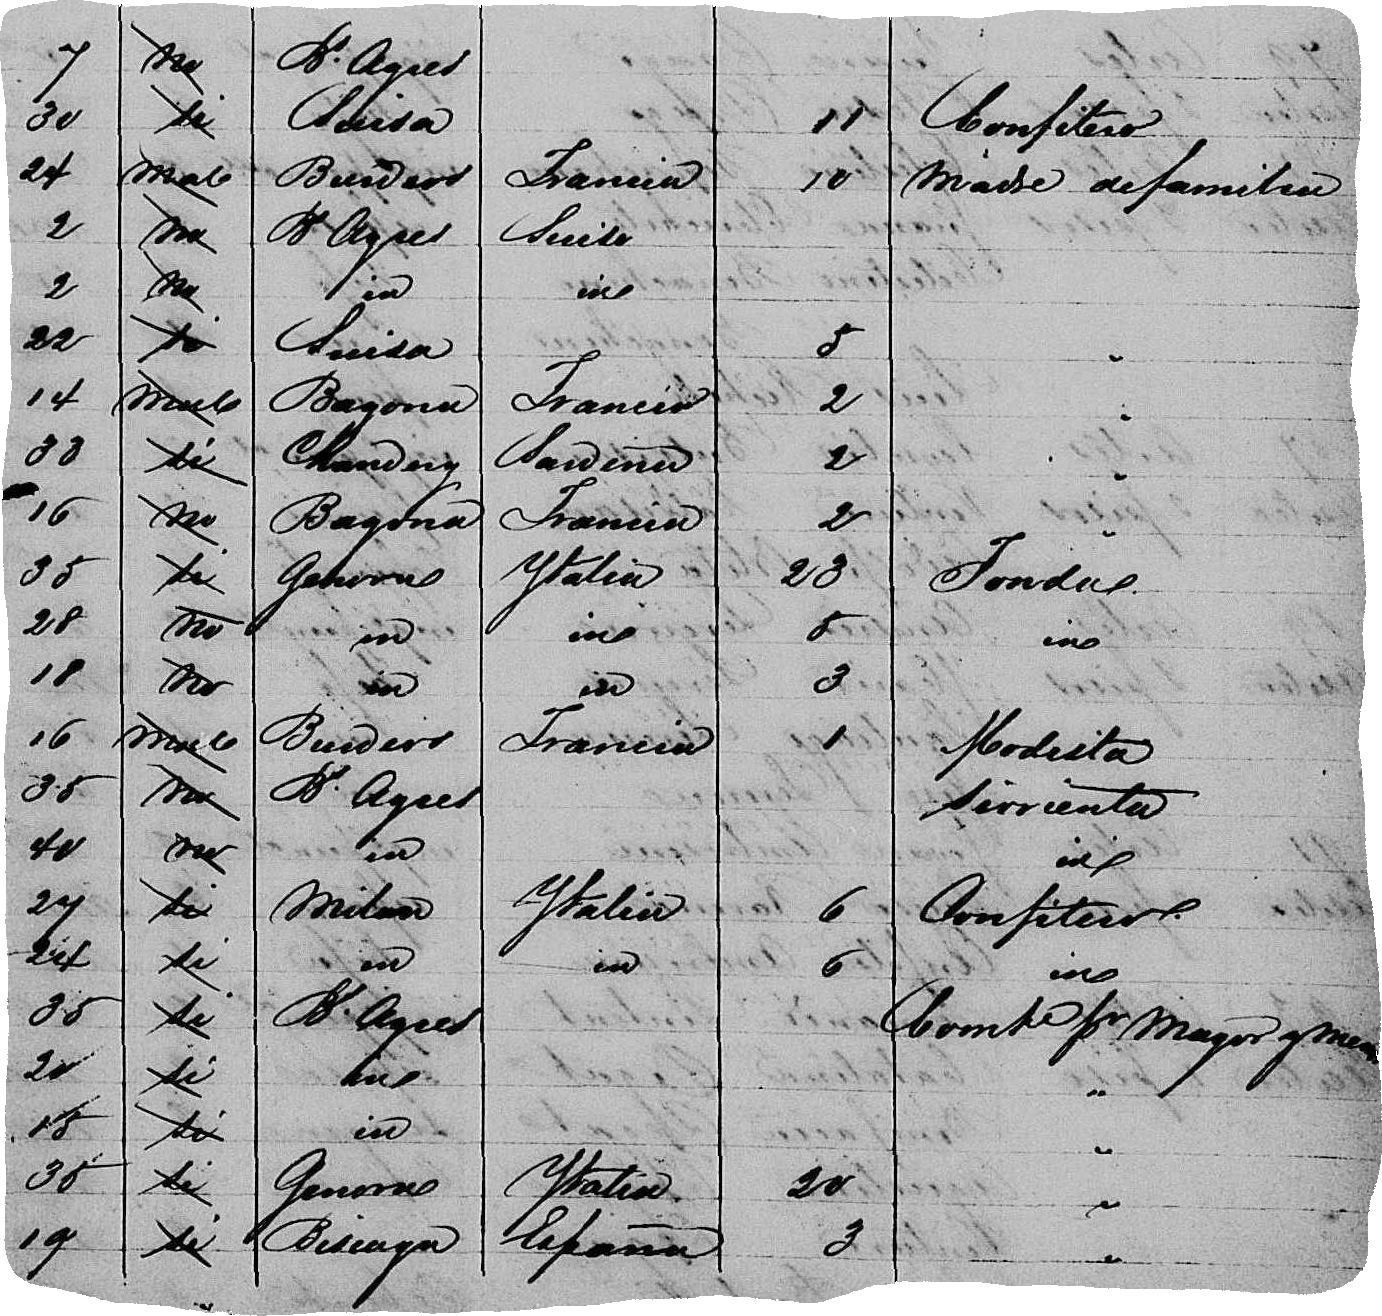 7 no Bs. Ayres
30 si Suisa 11 Confitero
24 Male Burdeos Francia 10 Madre de familia
2 no Bs Ayres Suisa
2 no id id
22 si Suisa 5 "
14 Male Bayona Francia 2 "
33 si Chambery Sardeña 2 "
16 no Bayona Francia 2 "
35 si Genova Ytalia 23 Fonda
28 no id id 5 id
18 no id id 3
16 Male Burdeos Francia 1 Modista
35 no Bs. Ayres Sirvienta
40 no id id
27 si Milan Ytalia 6 Confitero
24 si id id 6 id
35 si Bs. Ayres Comte pr Mayor y men
20 si id "
15 si id "
35 si Genova Ytalia 20 "
19 si Biscaya España 3 "